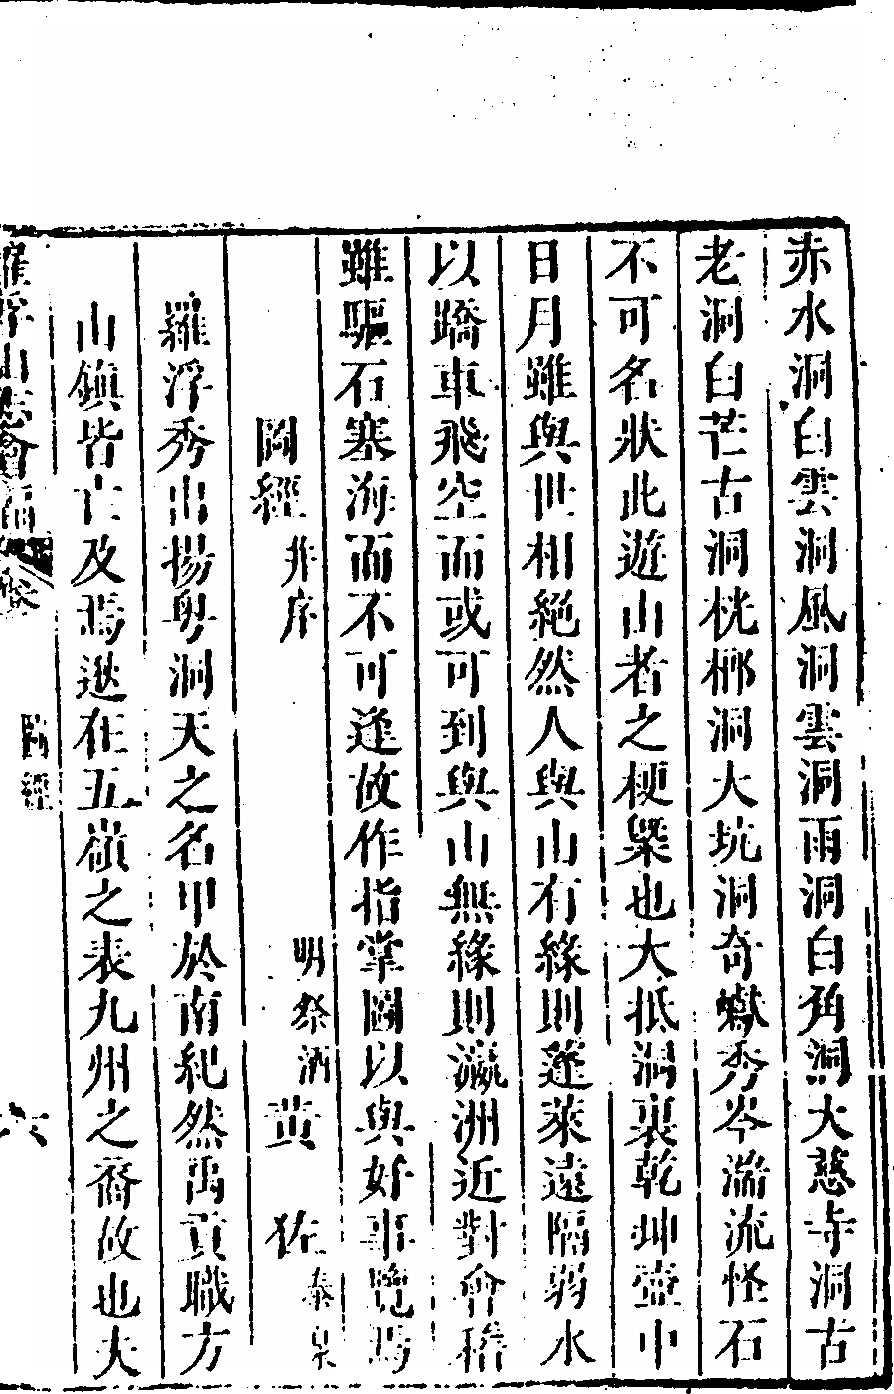 赤水洞白雲洞風洞雲洞雨洞白角洞大慈寺洞古
老洞白芒古洞桄榔洞大坑洞奇巘秀岑湍流怪石
不可名狀此遊山者之梗槩也大抵洞裏乾坤壺中
日月雖與世相絕然人與山有緣則蓬萊遠隔弱水
以蹻車飛空而或可到與山無緣則瀛洲近對會稽
雖驅石塞海而不可逢故作指掌圖以與好事覽焉
圖經 并序 明祭酒 黄 佐 泰泉
羅浮秀出揚粤洞天之名甲於南紀然禹貢職方
山鎮皆亡及焉逖在五嶺之表九州之裔故也夫
羅浮山志會編 卷 圖經 六